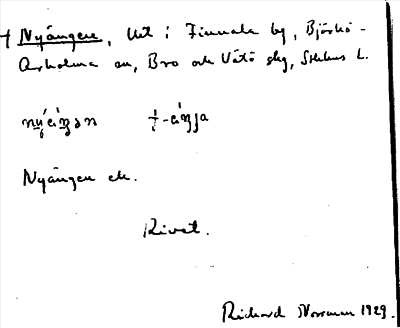 † Nyängen, lht i Finnala by, Björkö-
Arholma sn, Bro och Vätö skg, Sthlms l.
nýäŋən  i-äŋja
Nyängen ek.
Rivet.
Richard Norrman 1929.